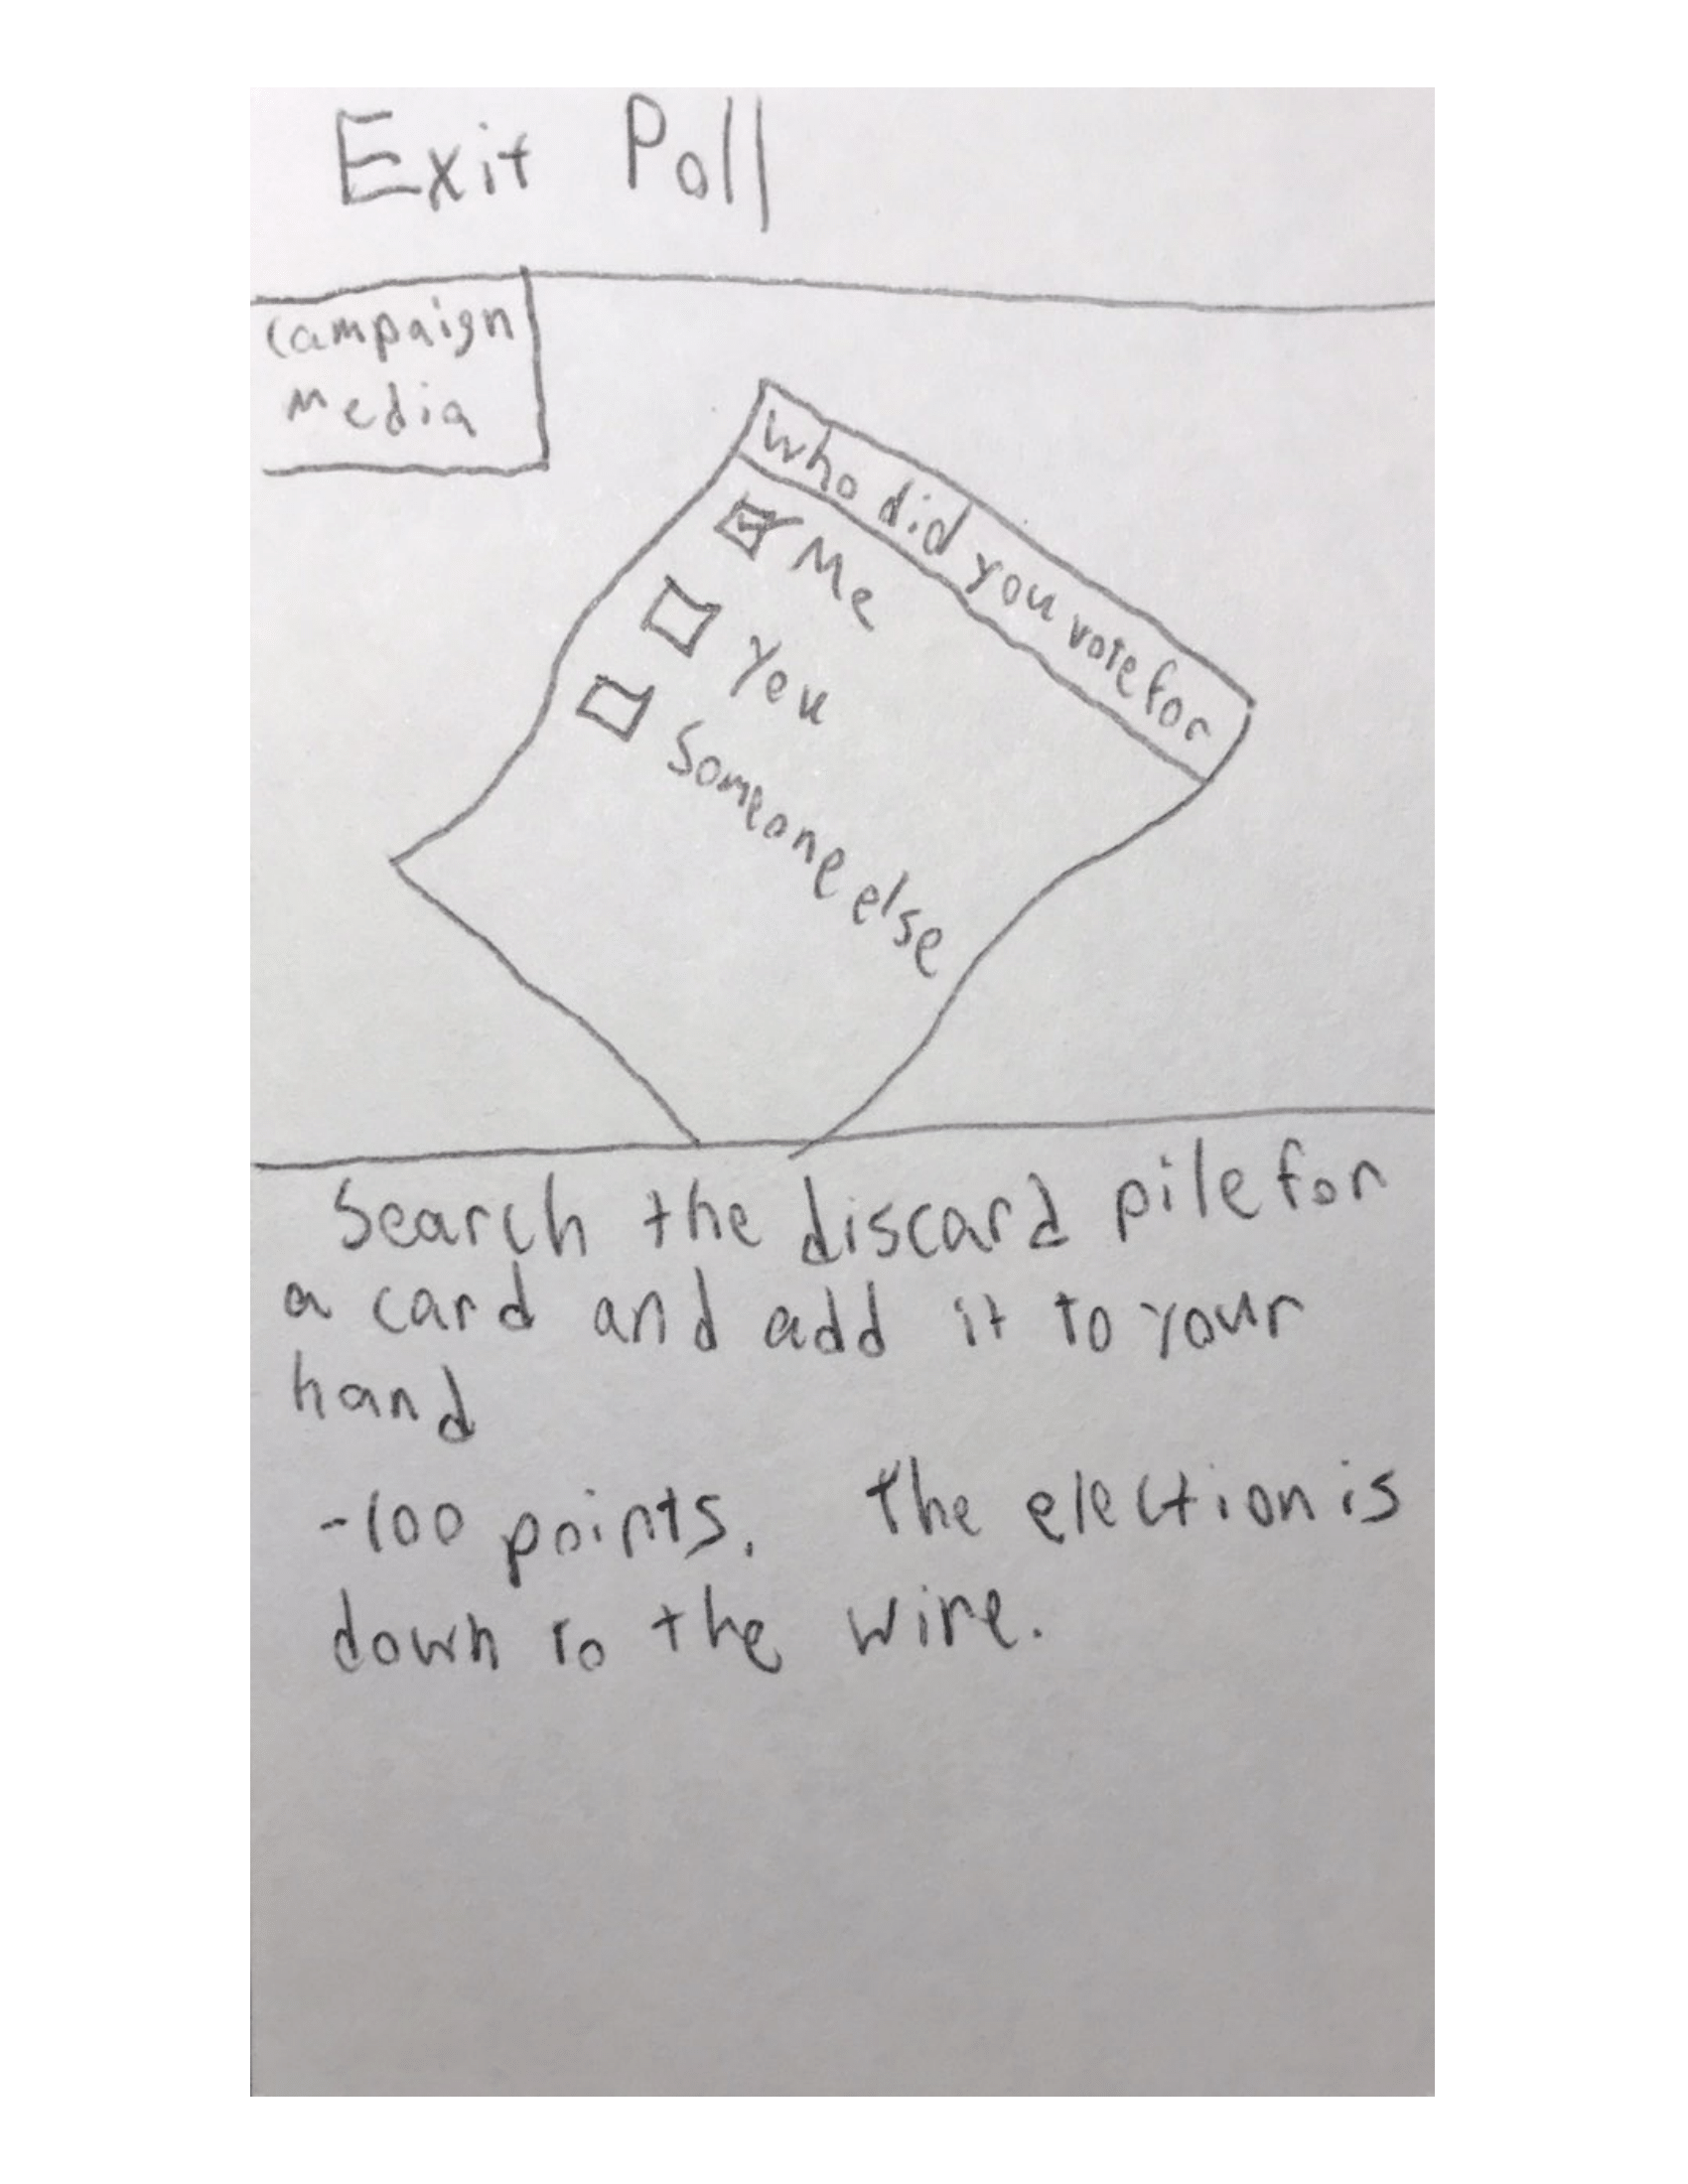 Exit Poll
Campaign
Media
Who did you vote for
Me
You
Someone else
Search the discard pile for
a card and add it to your
hand
-100 points. The election is
down to the wire.